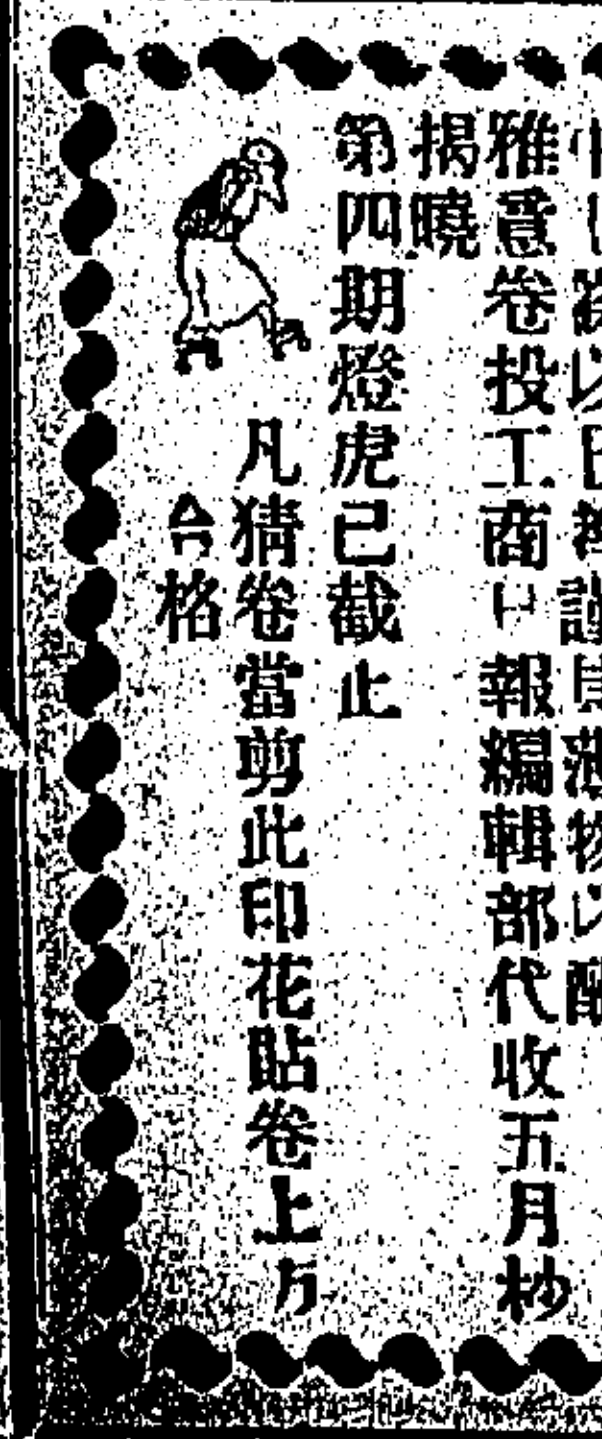 薄物以酬
雅意卷投工商日報編輯部代收五月杪
揭曉
第四期燈虎已截止
凡猜卷當剪此印花貼卷上方
合格